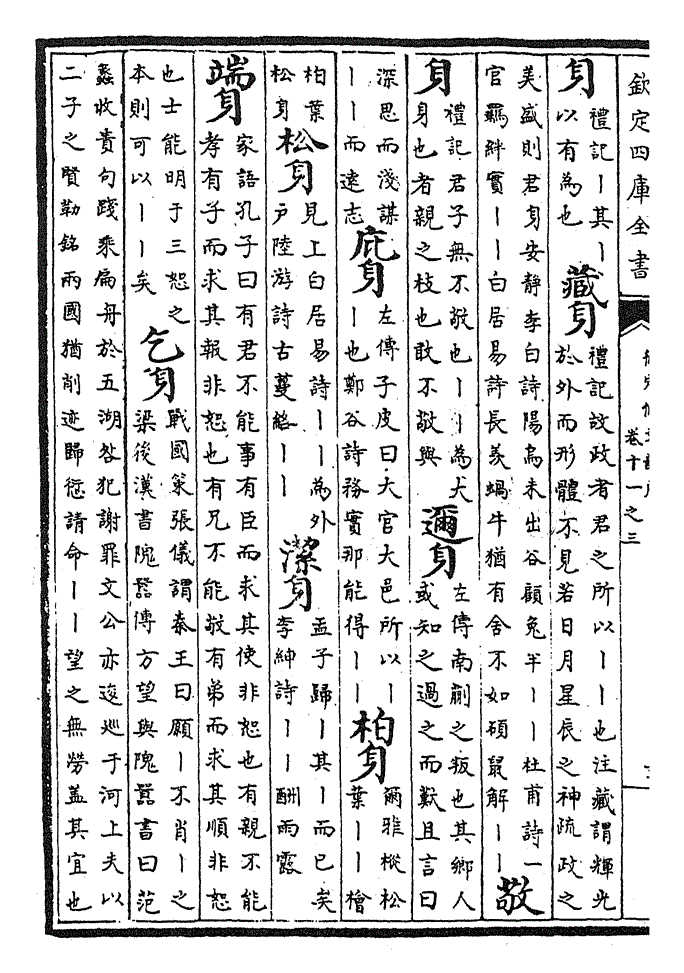 欽定四庫全書
卷十一之三
身
禮記丨其丨
以有為也
藏身
禮記故政者君之所以丨丨也注藏謂輝光
於外而形體不見若日月星辰之神疏政之
美盛則君身安静李白詩陽烏未出谷顧兔半丨丨杜甫詩一
官羈絆實丨丨白居易詩長羡蝸牛猶有舍不如碩鼠解丨丨
敬身
禮記君子無不敬也丨丨為大
身也者親之枝也敢不敬與
邇身
左傳南蒯之叛也其鄉人
或知之過之而歎且言曰
深思而淺謀
丨丨而遠志
庇身
左傳子皮曰大官大邑所以丨
丨也鄭谷詩務實那能得丨丨
柏身
爾雅樅松
葉丨丨檜
柏葉
松身
松身
見上白居易詩丨丨為外
户陸游詩古蔓絡丨丨
潔身
孟子歸丨其丨而已矣
李紳詩丨丨丨酬雨露
端身
家語孔子曰有君不能事有臣而求其使非恕也有親不能
孝有子而求其報非恕也有兄不能敬有弟而求其順非恕
也士能明于三恕之
本則可以丨丨矣
乞身
戰國策張儀謂秦王曰願丨不肖丨之
梁後漢書隗囂傳方望與隗囂書曰范
蠡收責句踐乘扁舟於五湖咎犯謝罪文公亦逡巡于河上夫以
二子之賢勒銘兩國猶削迹歸愆請命丨丨望之無勞蓋其宜也